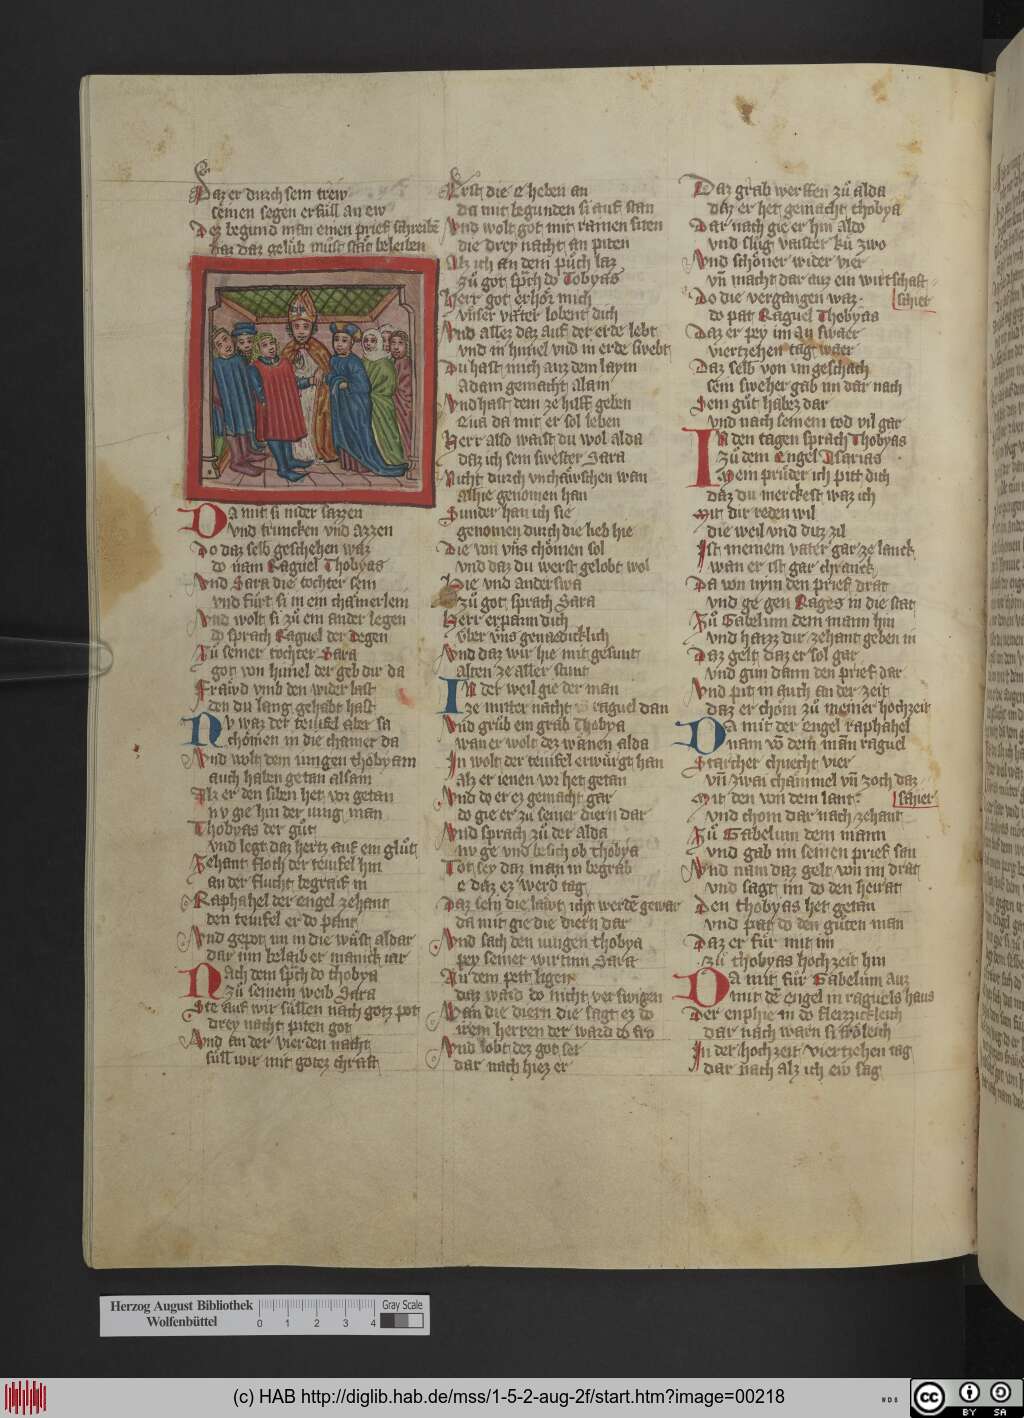 Daz er durch sein trew
seinen segen erfüll an ew
Dez begund man einen prief schreiben
Daz daz gelub müst stät beleiben
Da mit si nider sazzen
vnd truncken vnd azzen
Do daz selb geschehen waz
do nam Raguel Thobyas
Vnd Sara die tochter sein
vnd fürt si in ein chamerlein
Vnd wolt si zů ein ander legen
do sprach Raguel der Degen
Zů seiner tochter Sara
got von himel der geb dir da
Frawd vmb den wider last
den du lang gehabt hast
Nv waz der teufel aber sa
chömen in die chamer da
Vnd wolt dem iungen thobyam
auch haben getan alsam
Alz er den siben het vor getan
nv gie hin der iung man
Thobyas der gůt
vnd legt daz hertz auf ein glůt
Zehant floch der teufel hin
an der flucht begraif in
Raphahel der engel zehant
den teufel er do pant
Vnd gepot im in die wüst aldar
dar inn belaib er manick iar
Nach dem sprach do thobya
zů seinem weib Sara
Ste auf wir süllen nach gotz pot
drey nacht piten got
Vnd an der vierden nacht
süll wir mit gotez chraft
Erst die e heben an
da mit begunden si auf stan
Vnd wolt got mit rainen siten
die drey nacht an piten
Alz ich an dem půch laz
zů got sprach do Tobyas
Herr got erhör mich
vnser vater lobent dich
Vnd allez daz auf der erde lebt
vnd in himel vnd in erde swebt
Du hast mich auz dem laym
Adam gemacht allain
Vnd hast dem ze hilff geben
Eua da mit er sol leben
Herr also waist du wol alda
daz ich sein swester Sara
Nicht durch vnchäwschen wan
alhie genomen han
Sunder han ich sie
genomen durch die lieb hie
Die von vns chömen sol
vnd daz du werst gelobt wol
Hie vnd anderswa
zů got sprach Sara
Herr erparm dich
vber vns genaedicklich
Vnd daz wir hie mit gesunt
alten ze aller stunt
In der weil gie der man
ze mitter nacht raguel dan
Vnd grüb ein grab Thobya
wan er wolt dez wänen alda
In wolt der teufel erwürgt han
alz er ienen vor het getan
Vnd do er ez gemacht gar
do gie er zů seiner diern dar
Vnd sprach zů der alda
nv ge vnd besich ob thobya
Tot sey daz man in begrab
e daz ez werd tag
Daz sein die läwt icht werden gewar
da mit gie die diern dar
Vnd sach den iungen thobya
pey seiner wirtinn Sara
An dem pett ligen
daz ward do nicht verswigen
Wan die diern die sagt ez do
irem herren der ward do fro
Vnd lobt dez got ser
dar nach hiez er
Daz grab werffen zů alda
daz er het gemacht thobya
Dar nach gie er hin aldo
vnd slůg vaister kü zwo
Vnd schöner wider vier
vn macht dar auz ein wirtschaft
schier
Do die vergangen waz
do pat Raguel Thobyas
Daz er pey im an swaer
viertzehen tag waer
Daz selb von im geschach
sein sweher gab im dar nach
Sein gůt habez dar
vnd nach seinem tod vil gar
In den tagen sprach Thobyas
Zů dem Engel Isarias
Mein průder ich pitt dich
daz du merckest waz ich
Mit dir reden wil
die weil vnd ditz zil
Ist meinem vater gar ze lanck
wan er ist gar chranck
Da von nym den prief drat
vnd ge gen Rages in die stat
Zů Gabelum dem mann hin
vnd haizz dir zehant geben in
Daz gelt daz er sol gar
vnd gim dann den prief dar
Vnd pit in auch an der zeit
daz er chom zů meiner hochzeit
Da mit der engel raphahel
nam vo dem man raguel
Starcher chnecht vier
vn zwai chammel vn zoch daz
schier
Mit den von dem lant
vnd chom dar nach zehant
Zů Gabelum dem mann
vnd gab im seinen prief san
Vnd nam daz gelt von im drat
vnd sagt im do den heirat
Den thobyas het getan
vnd pat do den gůten man
Daz er für mit im
zů thobyas hochzeit hin
Da mit für Gabelum auz
mit dem engel in raguels haus
Der enphie in do fleizzickleich
dar nach warn si frölich
In der hochzeit viertzehen tag
dar nach alz ich ew sag
Herzog August Bibliothek
Wolfenbüttel
0 1 2 3 4
Gray Scale
(c) HAB http://diglib.hab.de/mss/1-5-2-aug-2f/start.htm?image=00218
WDB
cc BY SA